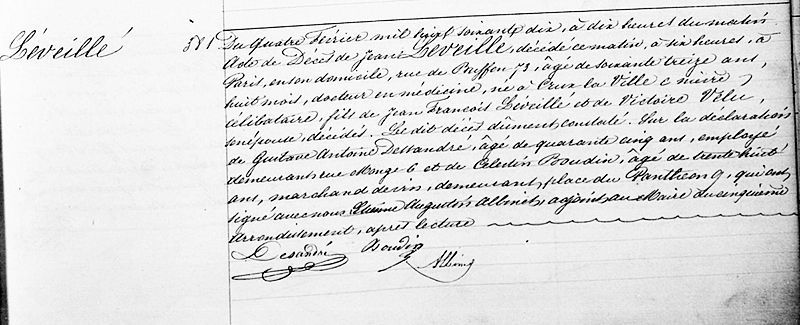 Léveillé
581 Du Quatre Février mil huit soixante dix, à dix heures du matin
Acte de Décès de Jean Léveillé, décédé ce matin, à six heures, à
Paris, en son domicile, rue de Buffon 73, âgé de soixante treize ans,
huit mois, docteur en médecine, né à Crux la Ville (Nièvre)
célibataire, fils de Jean François Léveillé et de Victoire Velu,
son épouse, décédés. Le dit décès dûment constaté. Sur la déclaration
de Gustave Antoine Dessandré, âgé de quarante cinq ans, employé
demeurant rue Monge 6 et de Célestin Boudin, âgé de trente huit
ans, marchand de vin, demeurant, place du Panthéon 9, qui ont
signé avec nous Augustin adjoint au Maire du cinquième
arrondissement, après lecture
Desandré Boudin